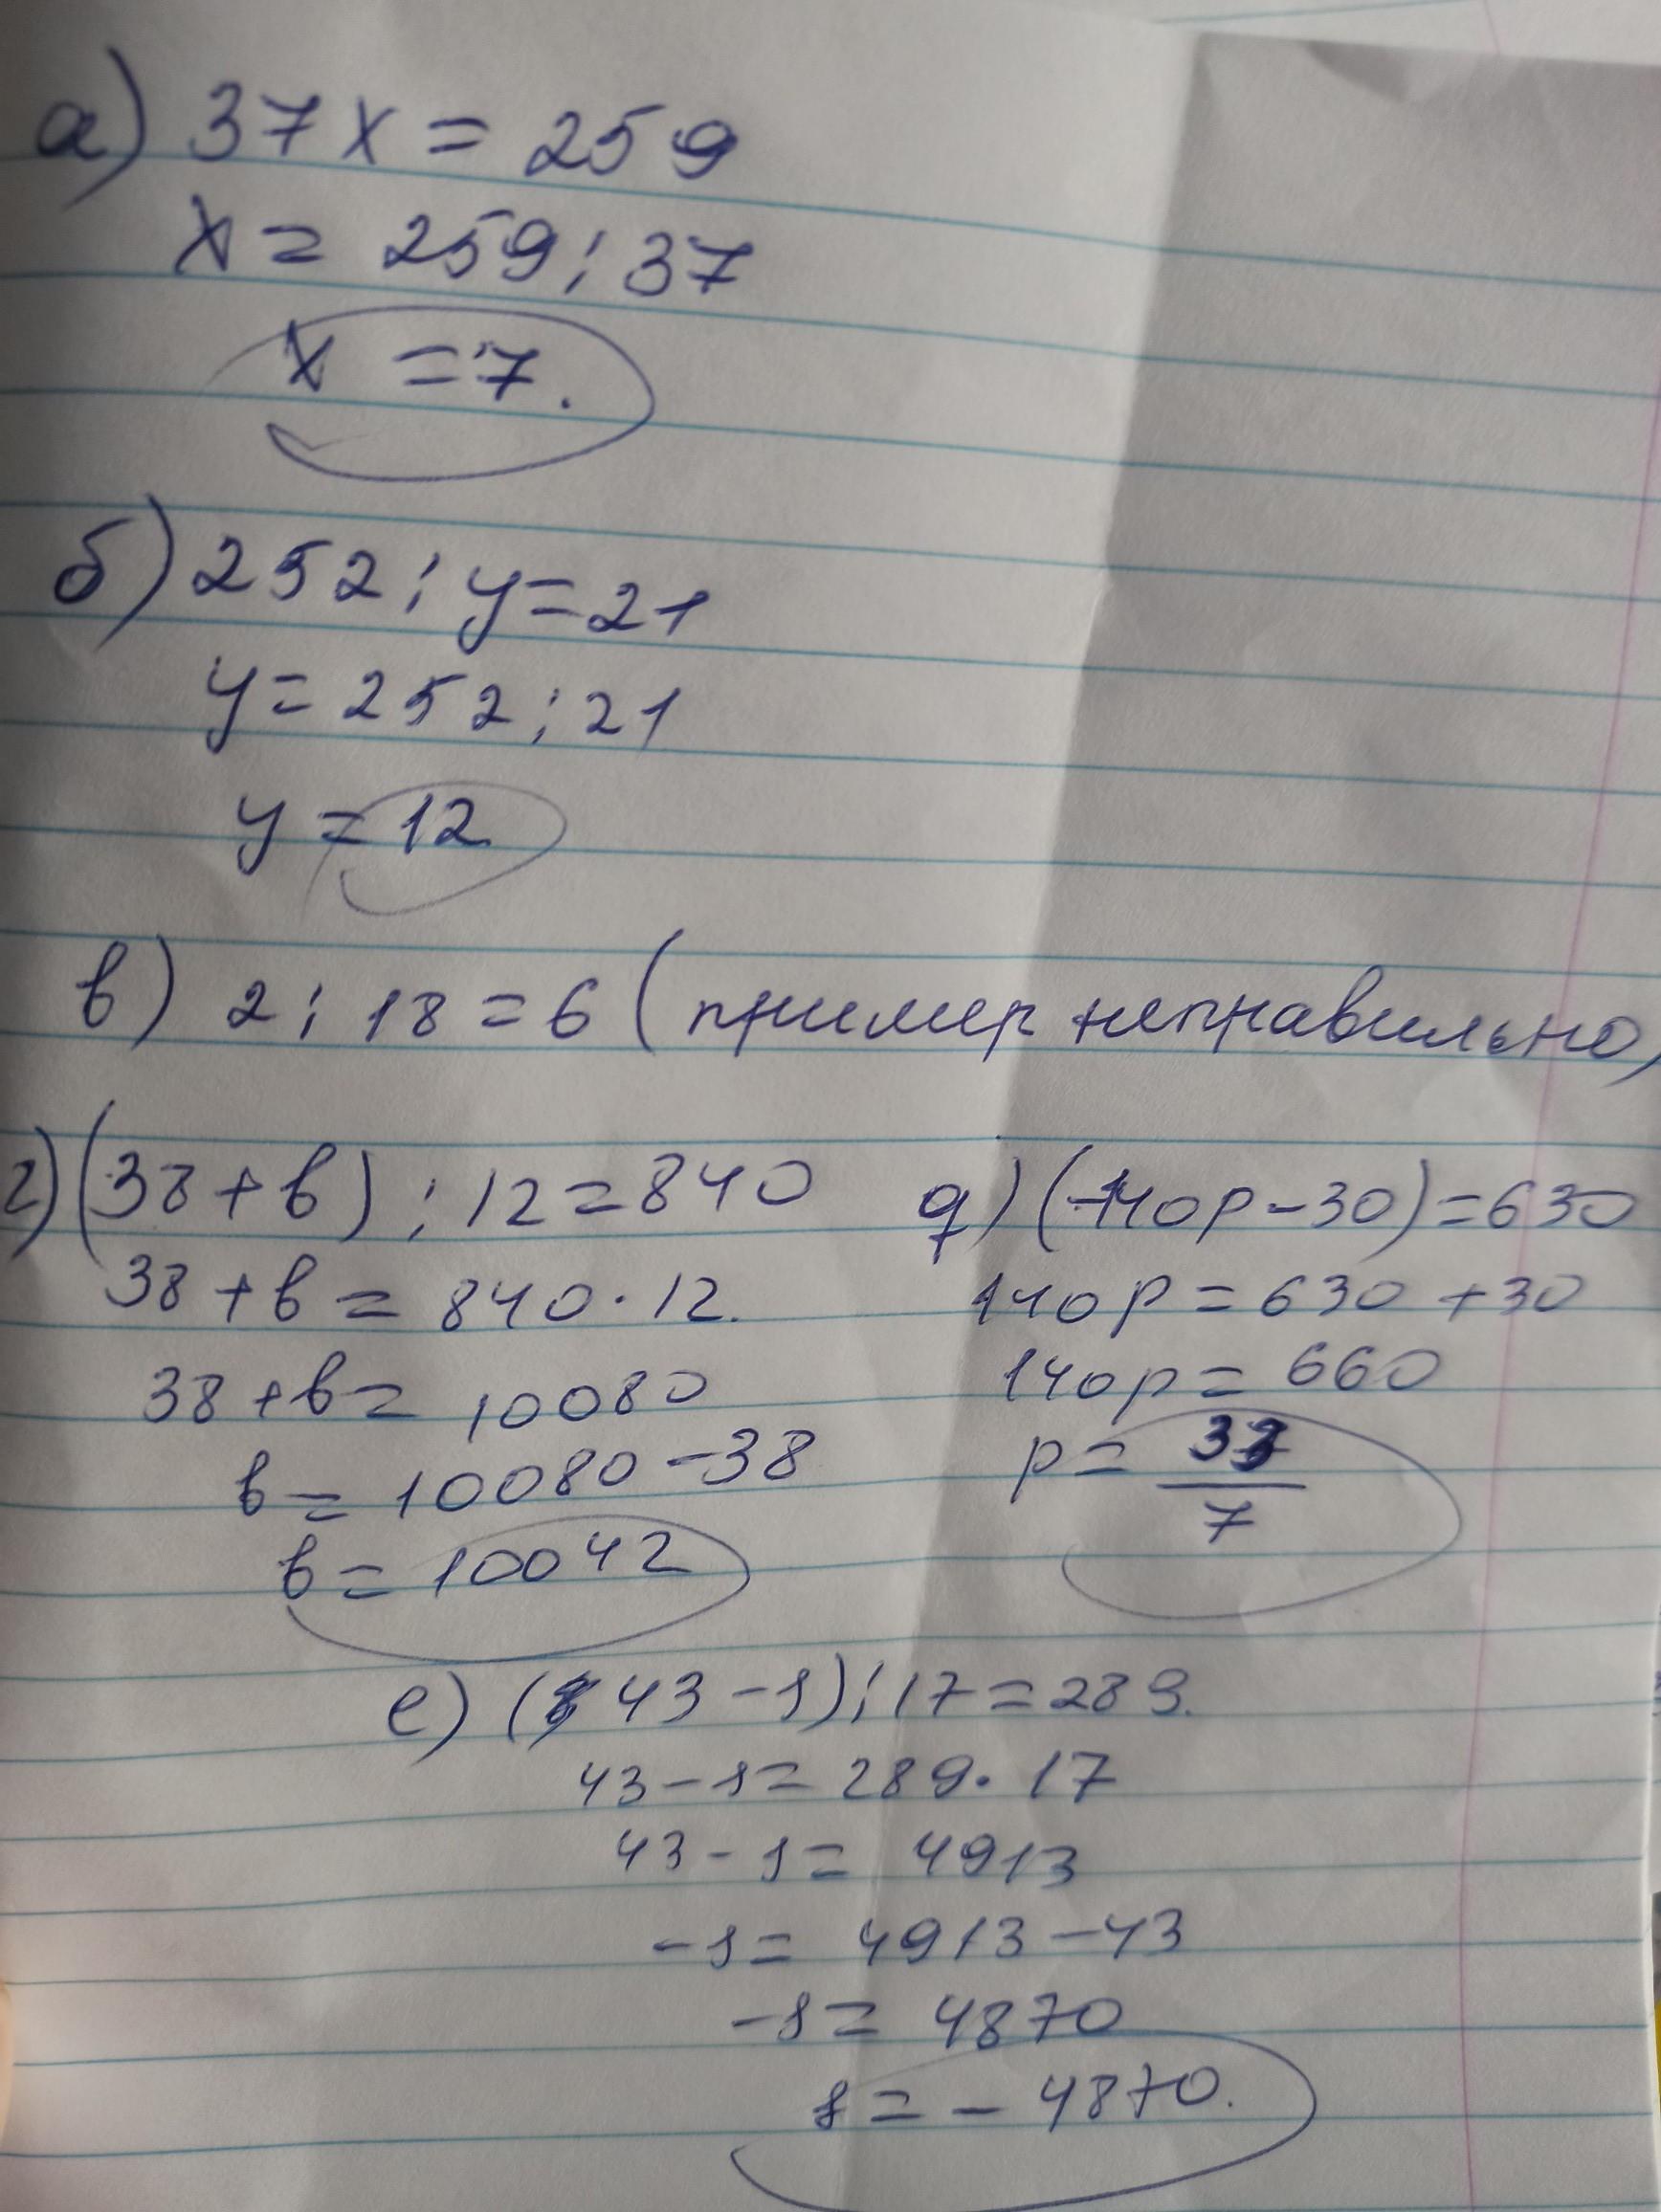 а) 37x = 259
x = 259 : 37
x = 7.
б) 252 : y = 21
y = 252 : 21
y = 12
в) 2 : 18 = 6 (пример неправильно)
г) (38 + b) : 12 = 840
38 + b = 840 · 12.
38 + b = 10080
b = 10080 - 38
b = 10042
д) (140p - 30) = 630
140p = 630 + 30
140p = 660
p = 33/7
е) (43 - s) : 17 = 289.
43 - s = 289 · 17
43 - s = 4913
-s = 4913 - 43
-s = 4870
s = - 4870.